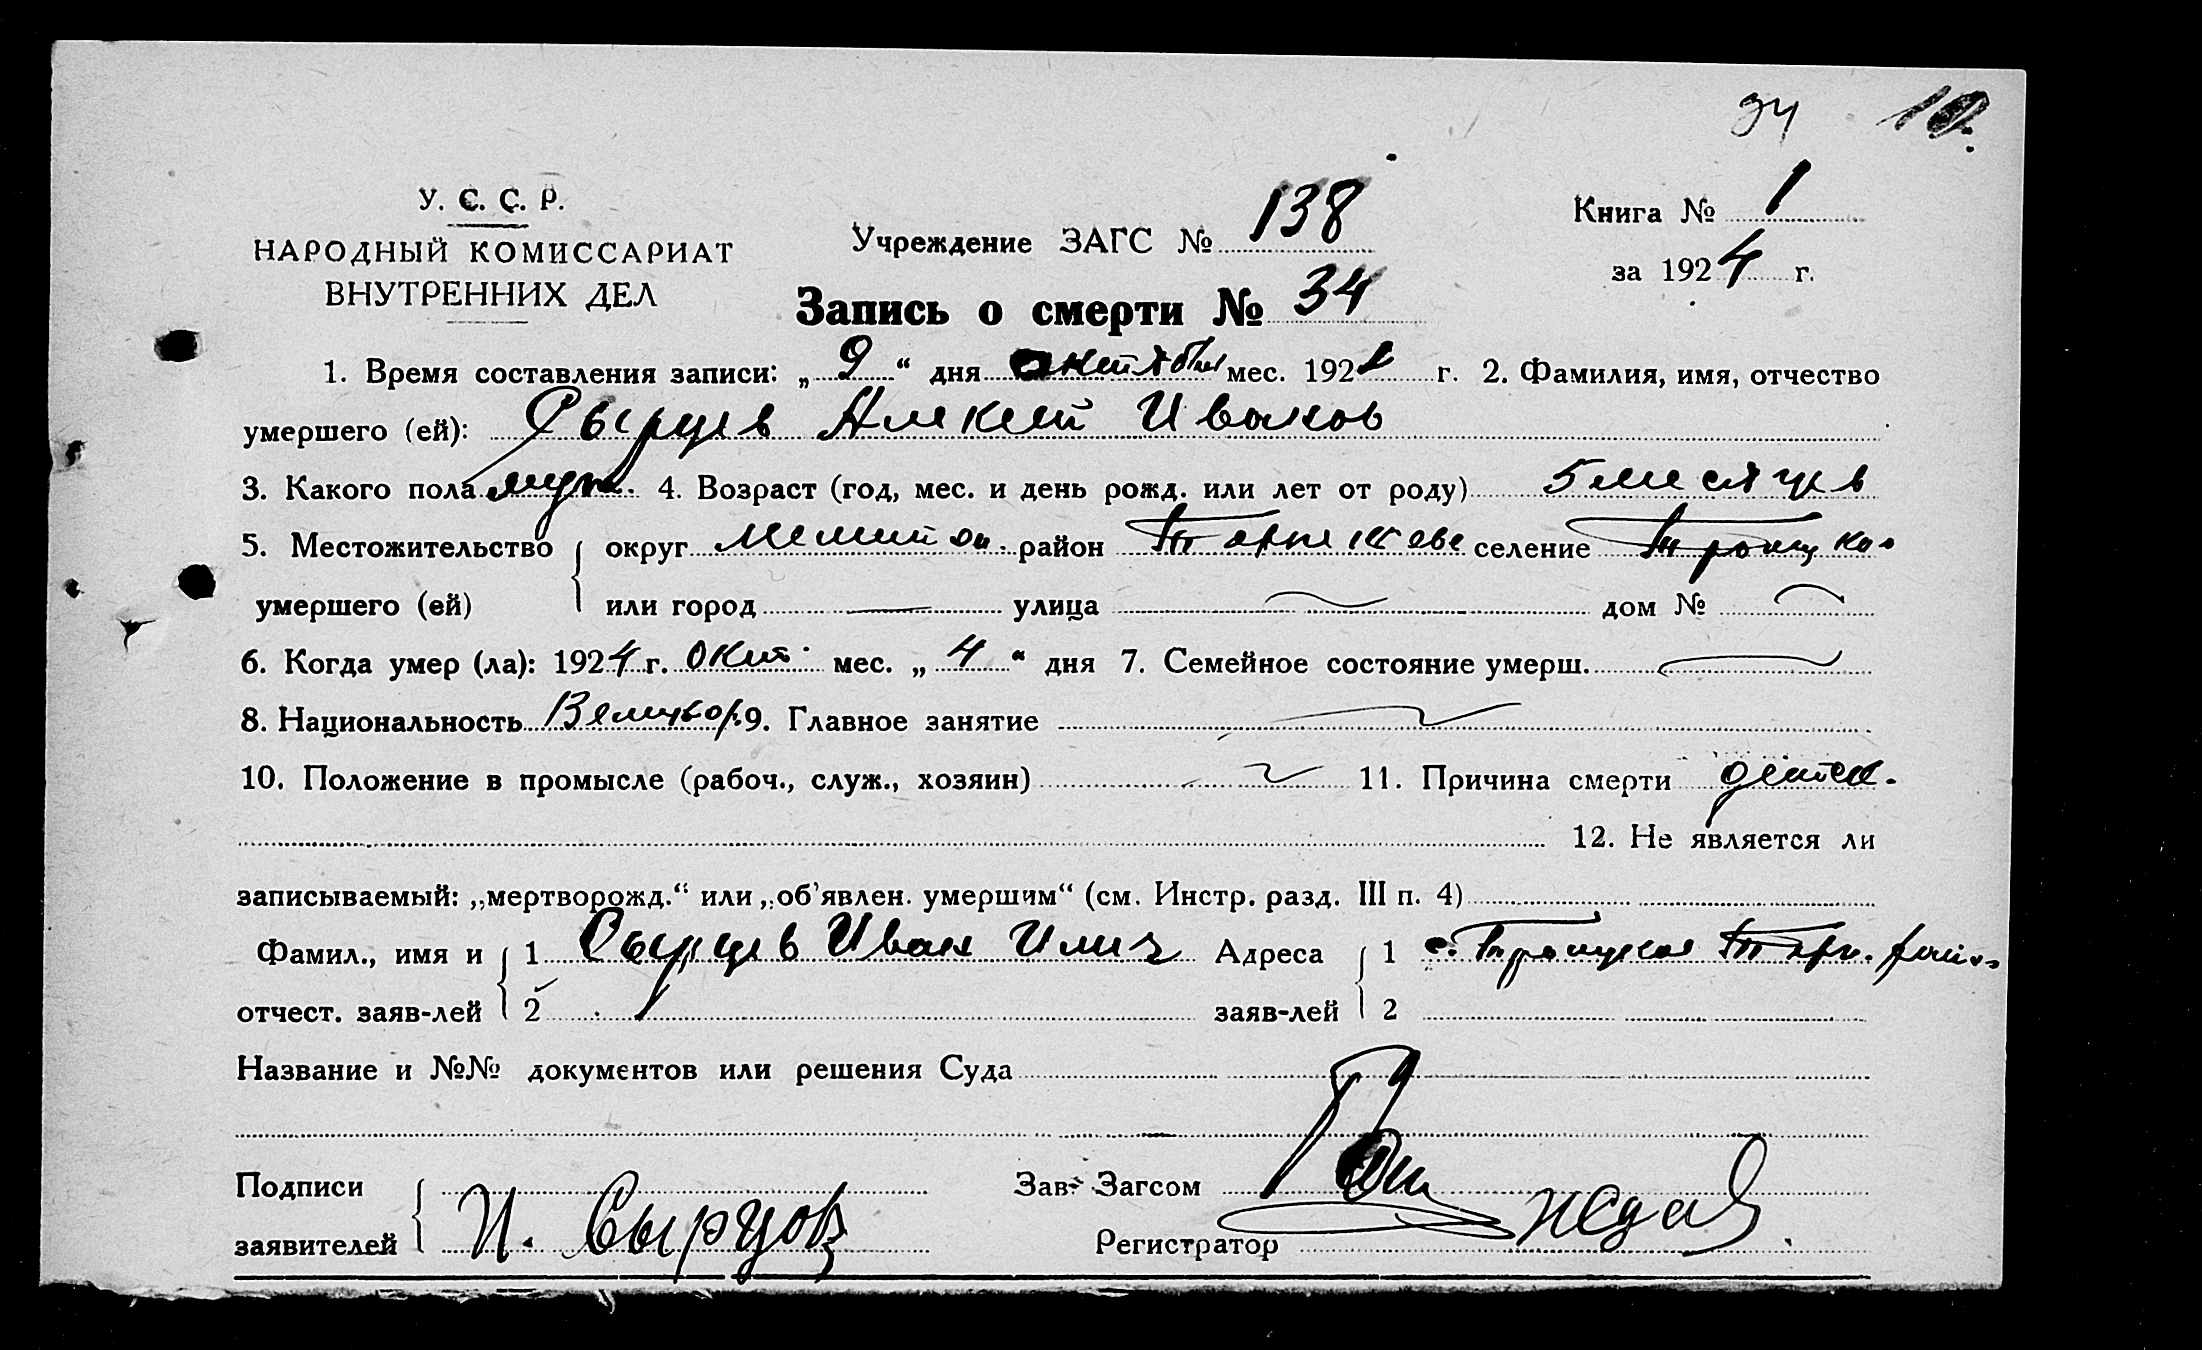 34 10.
У. С. С. Р.
НАРОДНЫЙ КОМИССАРИАТ
ВНУТРЕННИХ ДЕЛ
Учреждение ЗАГС № 138
Книга № 1
за 1924 г.
Запись о смерти № 34
1. Время составления записи: „ 9 “ дня октября мес. 192 г. 2. Фамилия, имя, отчество
умершего (ей): Сырцев Алексей Иванов
3. Какого пола муж. 4. Возраст (год, мес. и день рожд. или лет от роду) 5 месяцев
5. Местожительство округ район селение Троицкое
умершего (ей) или город — улица — дом № —
6. Когда умер (ла): 1924 г. Окт. мес. „ 4 “ дня 7. Семейное состояние умерш. —
8. Национальность Великор. 9. Главное занятие —
10. Положение в промысле (рабоч., служ., хозяин) — 11. Причина смерти детск.
12. Не является ли
записываемый: „мертворожд.“ или „об’явлен. умершим“ (см. Инстр. разд. III п. 4)
Фамил., имя и 1 Сырцев Иван Илич Адреса 1 с. Троицкое
отчест. заяв-лей 2 заяв-лей 2
Название и №№ документов или решения Суда
Подписи Зав. Загсом
заявителей И. Сырцов Регистратор